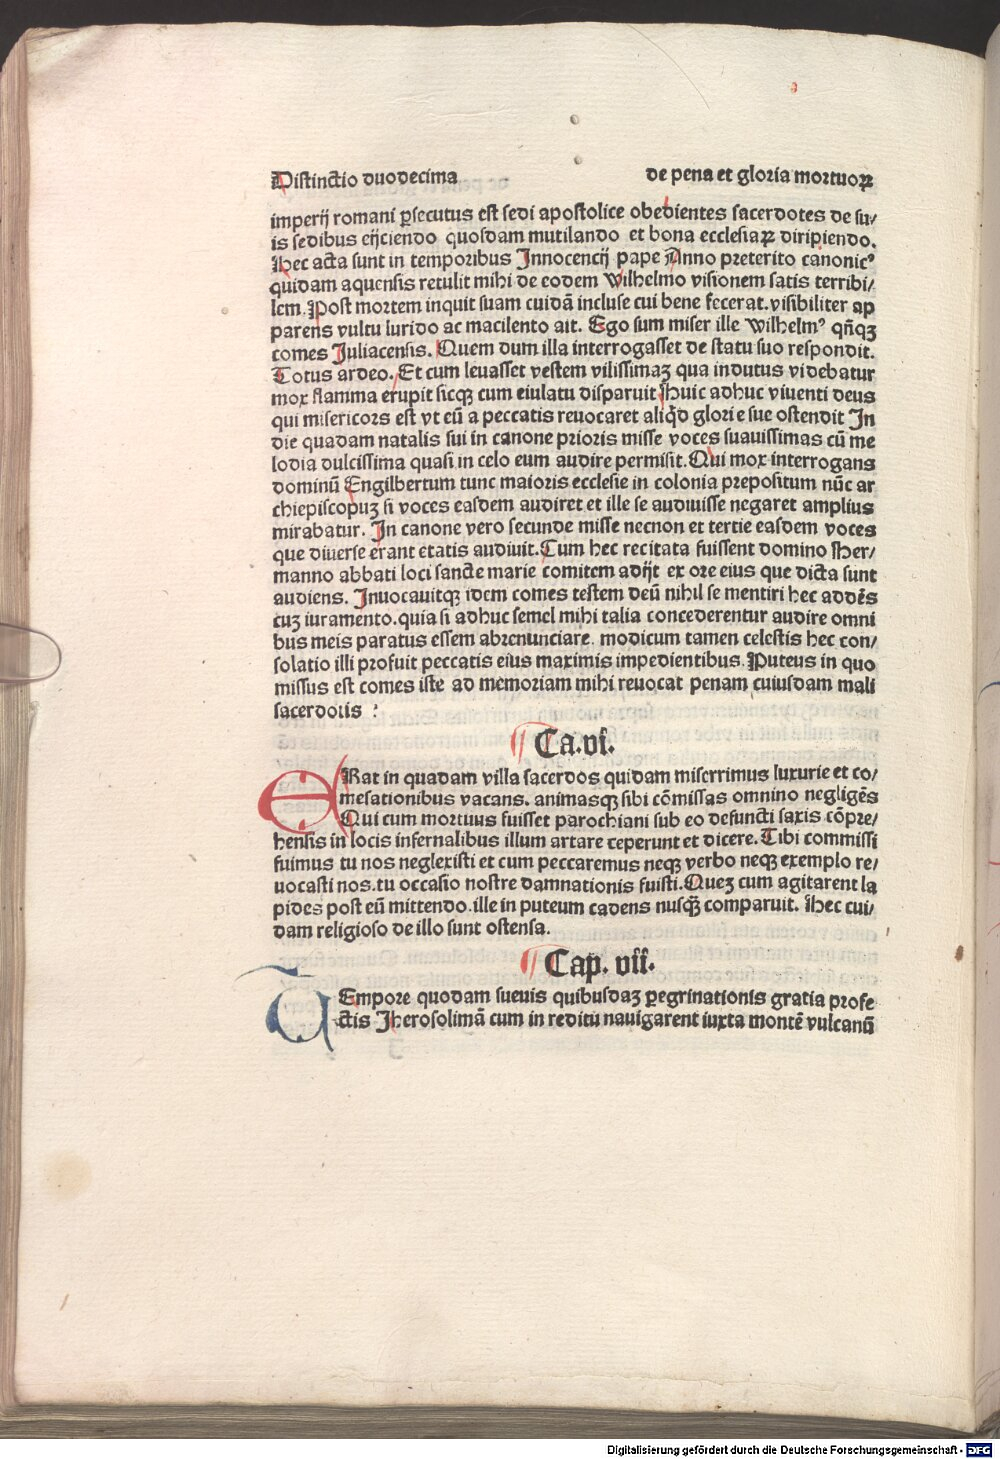 Distinctio duodecima de pena et gloria mortuoꝝ
imperij romani ꝑsecutus est sedi apostolice obedientes sacerdotes de su/
is sedibus eijciendo quosdam mutilando et bona ecclesiaꝝ diripiendo.
Hec acta sunt in temporibus Innocencij pape Anno preterito canonicꝰ
quidam aquensis retulit mihi de eodem Wilhelmo visionem satis terribi/
lem. Post mortem inquit suam cuidā incluse cui bene fecerat. visibiliter ap
parens vultu lurido ac macilento ait. Ego sum miser ille Wilhelmꝰ qn̄qꝫ
comes Juliacensis. Quem dum illa interrogasset de statu suo respondit.
Totus ardeo. Et cum leuasset vestem vilissimaꝫ qua indutus videbatur
mox flamma erupit sicqꝫ cum eiulatu disparuit Huic adhuc viuenti deus
qui misericors est vt eū a peccatis reuocaret aliqd̄ glorie sue ostendit In
die quadam natalis sui in canone prioris misse voces suauissimas cū me
lodia dulcissima quasi in celo eum audire permisit. Qui mox interrogans
dominū Engilbertum tunc maioris ecclesie in colonia prepositum nūc ar
chiepiscopuꝫ si voces easdem audiret et ille se audiuisse negaret amplius
mirabatur. In canone vero secunde misse necnon et tertie easdem voces
que diuerse erant etatis audiuit. Cum hec recitata fuissent domino Her/
manno abbati loci sancte marie comitem adijt ex ore eius que dicta sunt
audiens. Inuocauitqꝫ idem comes testem deū nihil se mentiri hec addēs
cuꝫ iuramento. quia si adhuc semel mihi talia concederentur audire omni
bus meis paratus essem abrenunciare. modicum tamen celestis hec con/
solatio illi profuit peccatis eius maximis impedientibus. Puteus in quo
missus est comes iste ad memoriam mihi reuocat penam cuiusdam mali
sacerdotis :
Ca. vi.
ERat in quadam villa sacerdos quidam miserrimus luxurie et co/
mesationibus vacans. animasqꝫ sibi cōmissas omnino negligēs
Qui cum mortuus fuisset parochiani sub eo defuncti saxis cōpre/
hensis in locis infernalibus illum artare ceperunt et dicere. Tibi commissi
fuimus tu nos neglexisti et cum peccaremus neqꝫ verbo neqꝫ exemplo re/
uocasti nos. tu occasio nostre damnationis fuisti. Queꝫ cum agitarent la
pides post eū mittendo. ille in puteum cadens nusqꝫ̄ comparuit. Hec cui/
dam religioso de illo sunt ostensa.
Cap. vii.
TEmpore quodam sueuis quibusdaꝫ ꝑegrinationis gratia profe
ctis Jherosolimā cum in reditu nauigarent iuxta montē vulcanū
Digitalisierung gefördert durch die Deutsche Forschungsgemeinschaft - DFG